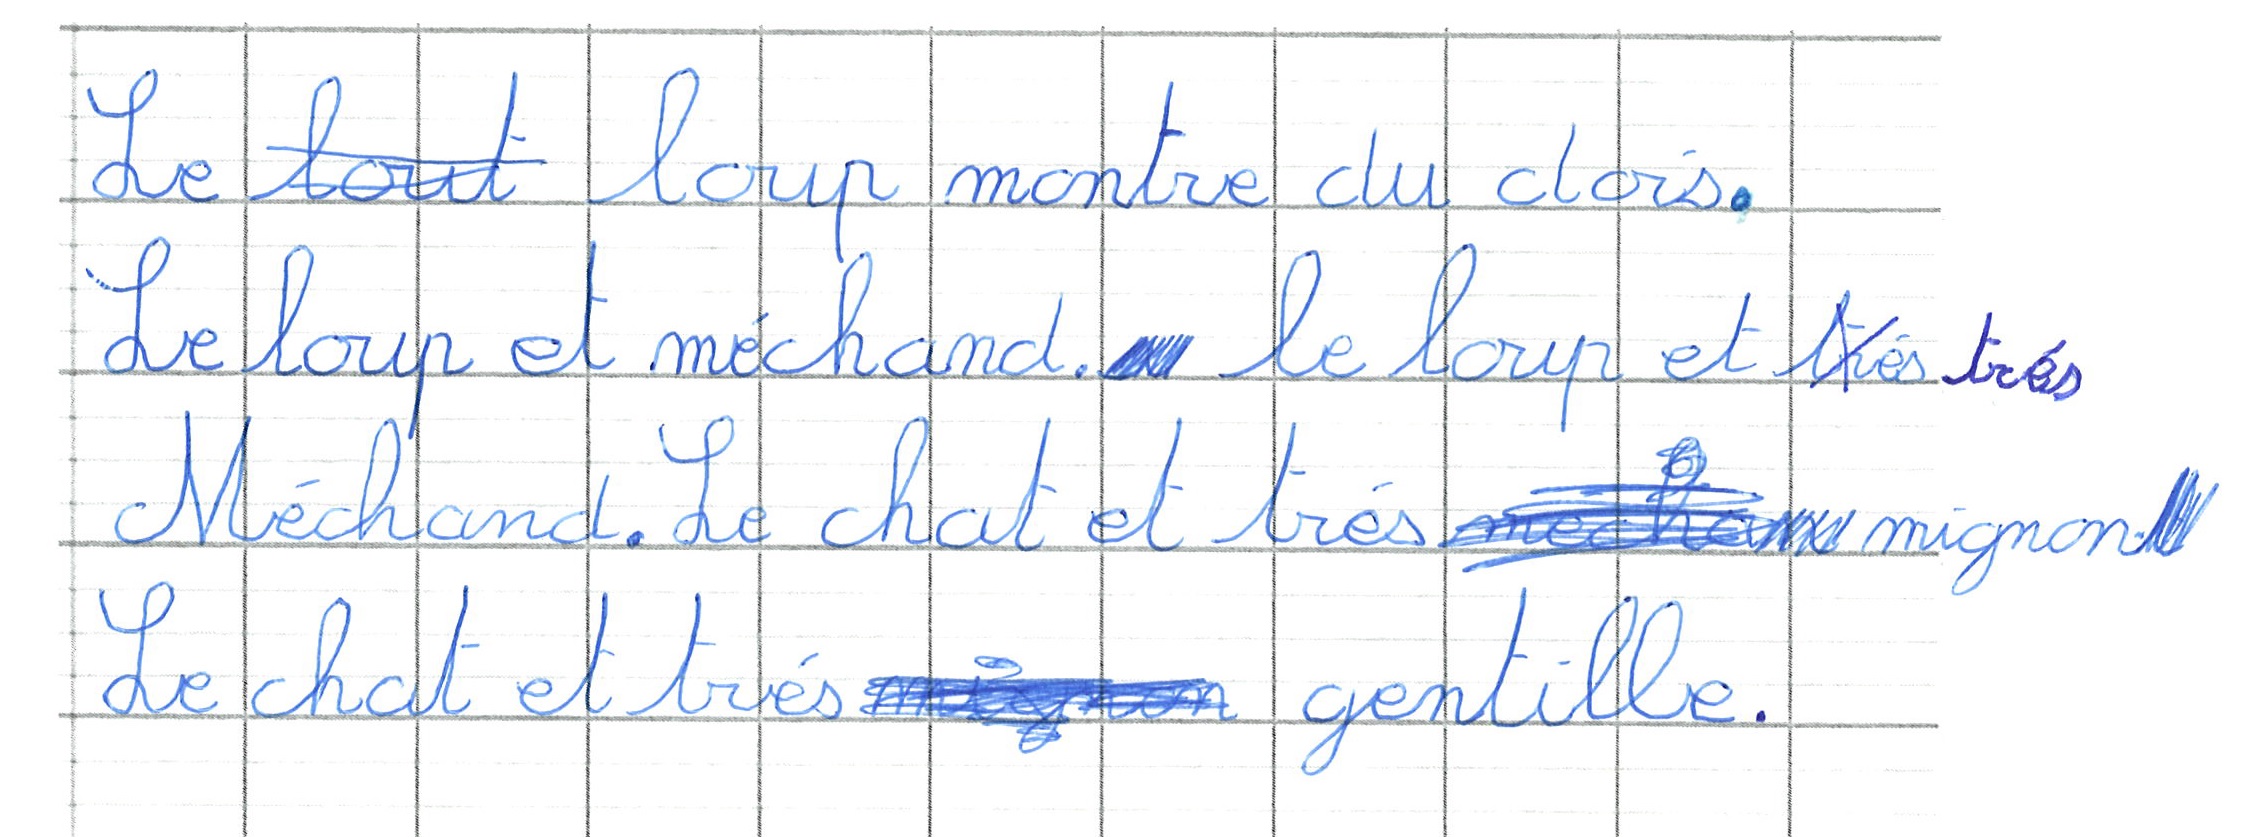 Le tout loup montre du dois.
Le loup et méchand. le loup et trés trés
Méchand. Le chat et trés mignon
Le chat et trés mignon gentille.